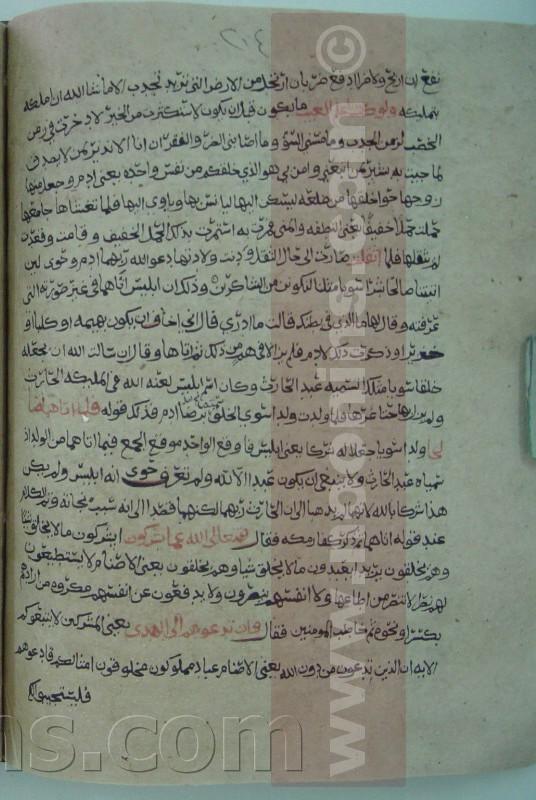 ٢١٤
نفعا ان اربح ولا ضرا ادفع ضرا بان ارتحل من الارض التى تريد تجدب الا ما شا الله ان املكه
بتمليكه ولو كنت اعلم الغيب ما يكون قبل ان يكون لاستكثرت من الخير لادخرت فى زمن
الخصب لزمن الجدب وما مسنى السوء وما اصابنى الضر والفقر ان انا الا نذير لمن لا يصدق
بما جيت به بشير لمن اتبعنى وامن بى هو الذى خلقكم من نفس واحدة يعنى ادم وجعل منها
زوجها حوا خلقها من ضلعه ليسكن اليها ليانس بها وياوى اليها فلما تغشاها جامعها
حملت حملا خفيفا يعنى النطفه والمنى فمرت به استمرت بذلك الحمل الخفيف وقامت وقعدت
لم يثقلها فلما اثقلت صارت الى حال الثقل ودنت ولادتها دعوا الله ربهما ادم وحوى لين
اتيتنا صالحا بشرا سويا مثلنا لنكونن من الشاكرين وذلك ان ابليس اتاهما فى غير صورته التى
عرفته وقال لها ما الذى فى بطنك قالت ما ادرى قال انى اخاف ان يكون بهيمه او كلبا او
خنزيرا وذكرت ذلك لادم فلم يزالا فى هم من ذلك ثم اتاها وقال ان سالت الله ان يجعله
خلقا سويا مثلك اتسميه عبد الحارث وكان اسم ابليس لعنه الله فى الملئكه الحارث
ولم يزل بها حتى غرها فلما ولدت ولدا سوى الخلق سمته عبد الحارث برضا ادم فذلك قوله فلما اتاهما صا
لحا ولدا سويا جعلا له شركا يعنى ابليس فاوقع الواحد موقع الجمع فيما اتاهما من الولد اذ
سمياه عبد الحارث ولا ينبغى ان يكون عبدا الا لله ولم تعرف حوى انه ابليس ولم يكن
هذا شركا بالله لانهما لم يذهبا الى ان الحارث ربهما لكنهما قصدا الى انه سبب نجاته وتم الكلام
عند قوله اتاهما ثم ذكر كفار مكه فقال فتعالى الله عما يشركون ايشركون ما لا يخلق شيا
وهم يخلقون يريد ايعبدون ما لا يخلق شيا وهم يخلقون يعنى الاصنام ولا يستطيعون
لهم نصرا لا تنصر من اطاعها ولا انفسهم ينصرون ولا يدفعون عن انفسهم مكروه من ارادهم
بكسر او نحوه ثم خاطب المومنين فقال وان تدعوهم الى الهدى يعنى المشركين لا يتبعوكم
الايه ان الذين تدعون من دون الله يعنى الاصنام عباد مملوكون مخلوقون امثالكم فادعوهم
فليستجيبوا
© www.alukah-ms.com
ns.com